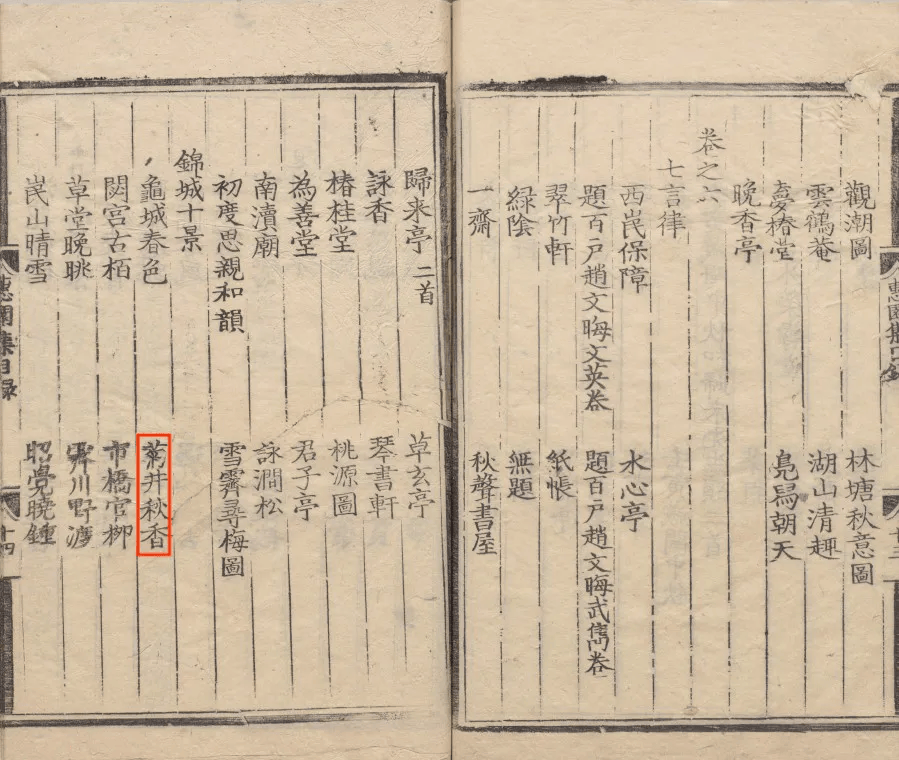 觀潮圖 林塘秋意圖
雲鶴菴 湖山清趣
壽椿堂 鳧舄朝天
晚香亭
卷之六
七言律
西崑保障 水心亭
題百戶趙文晦文英卷 題百戶趙文晦武雋卷
翠竹軒 紙帳
綠陰 無題
一齋 秋聲書屋
惠園集目錄 十三
歸来亭二首 草玄亭
詠香 琴書軒
椿桂堂 桃源圖
為善堂 君子亭
南瀆廟 詠澗松
初度思親和韻 雪霽尋梅圖
錦城十景
龜城春色 菊井秋香
閟宮古栢 市橋官柳
草堂晚眺 霽川野渡
岷山晴雪 昭覺曉鍾
惠園集目錄 十四